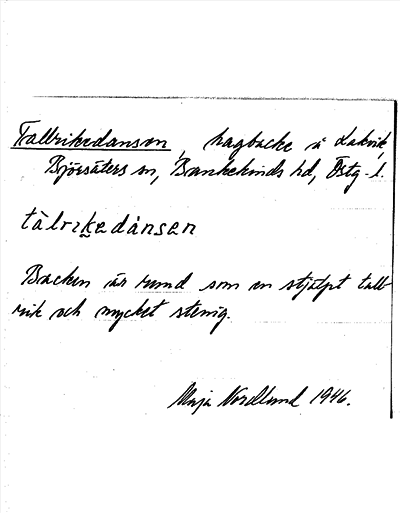 Tallrikedansen, hagbacke å Lakvik,
Björsäters sn, Bankekinds hd, Östg. l.
tàlrikedánsen
Backen är rund som en stjälpt tall-
rik och mycket stenig.
Maja Nordlund 1946.